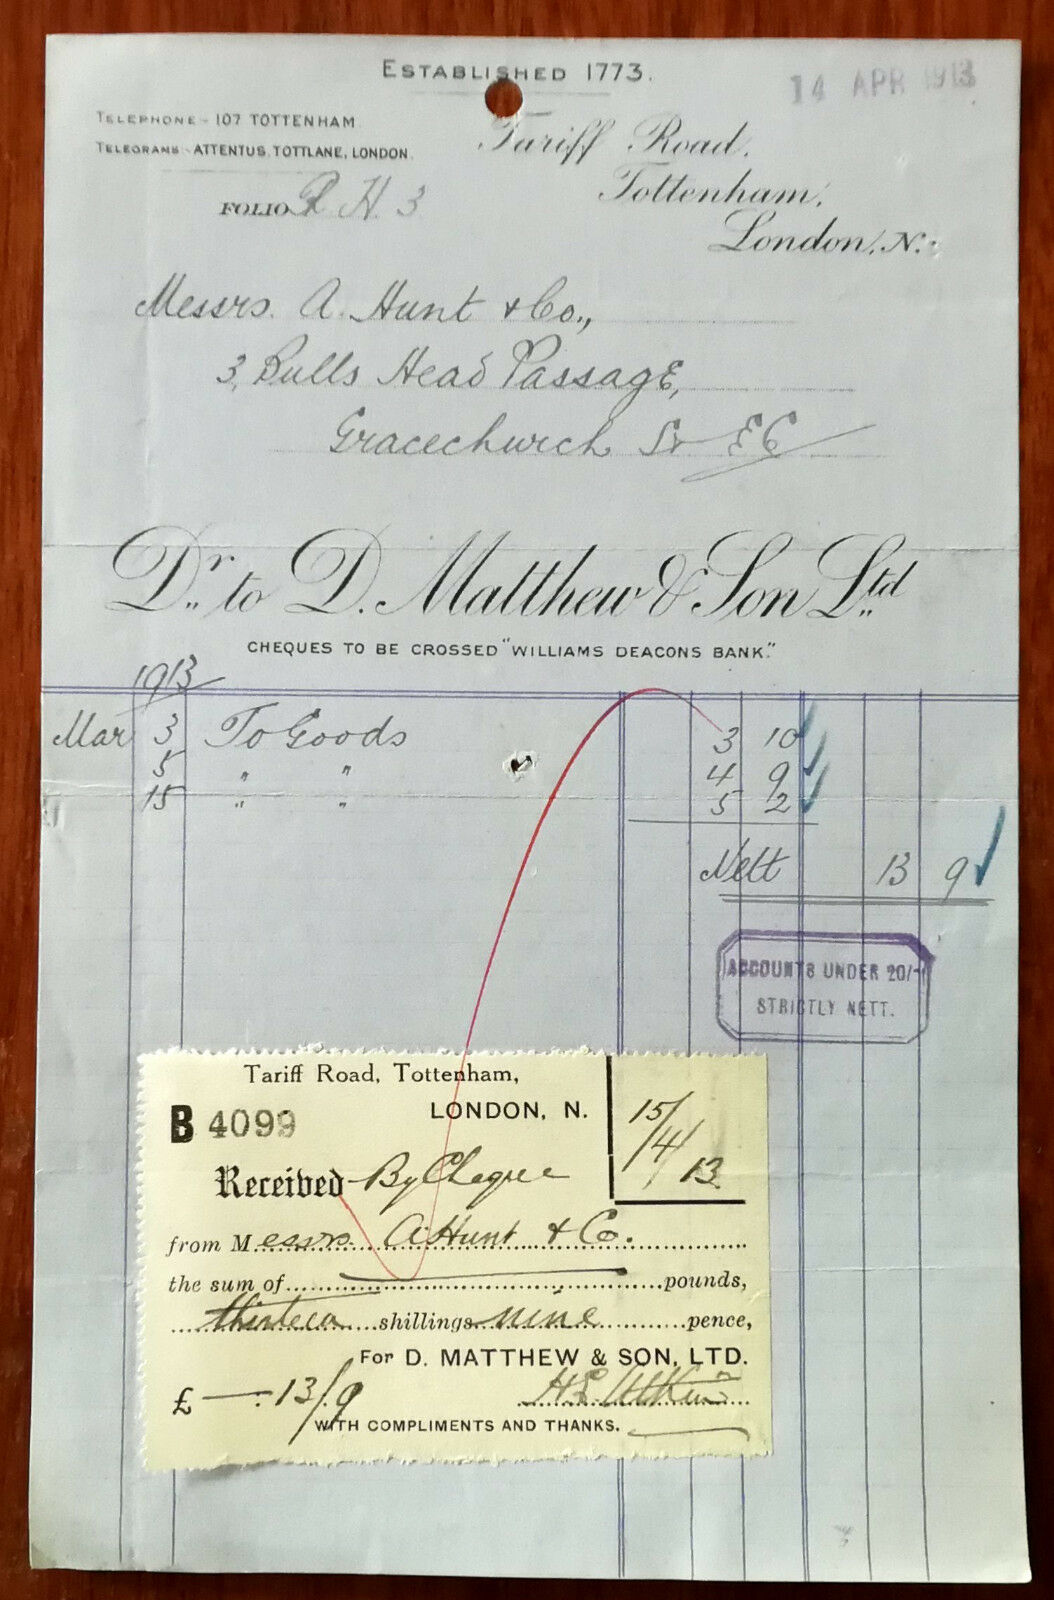 ESTABLISHED 1773.
14 APR 1913
TELEPHONE - 107 TOTTENHAM
TELEGRAMS - ATTENTUS, TOTTLANE, LONDON.
Tariff Road,
Tottenham,
London, N.
FOLIO R H. 3
Messrs. A. Hunt & Co.,
3, Bulls Head Passage,
Gracechurch St EC
Dr. to D. Matthew & Son Ltd
CHEQUES TO BE CROSSED "WILLIAMS DEACONS BANK."
1913
Mar 3 To Goods 3 10
5 " " 4 9
15 " " 5 2
Nett 13 9
ACCOUNTS UNDER 20/-
STRICTLY NETT.
Tariff Road, Tottenham,
LONDON, N.
B 4099
15/4/13
Received By Cheque
from Messrs. A Hunt & Co.
the sum of pounds,
thirteen shillings nine pence,
For D. MATTHEW & SON, LTD.
£ — . 13/9
WITH COMPLIMENTS AND THANKS.